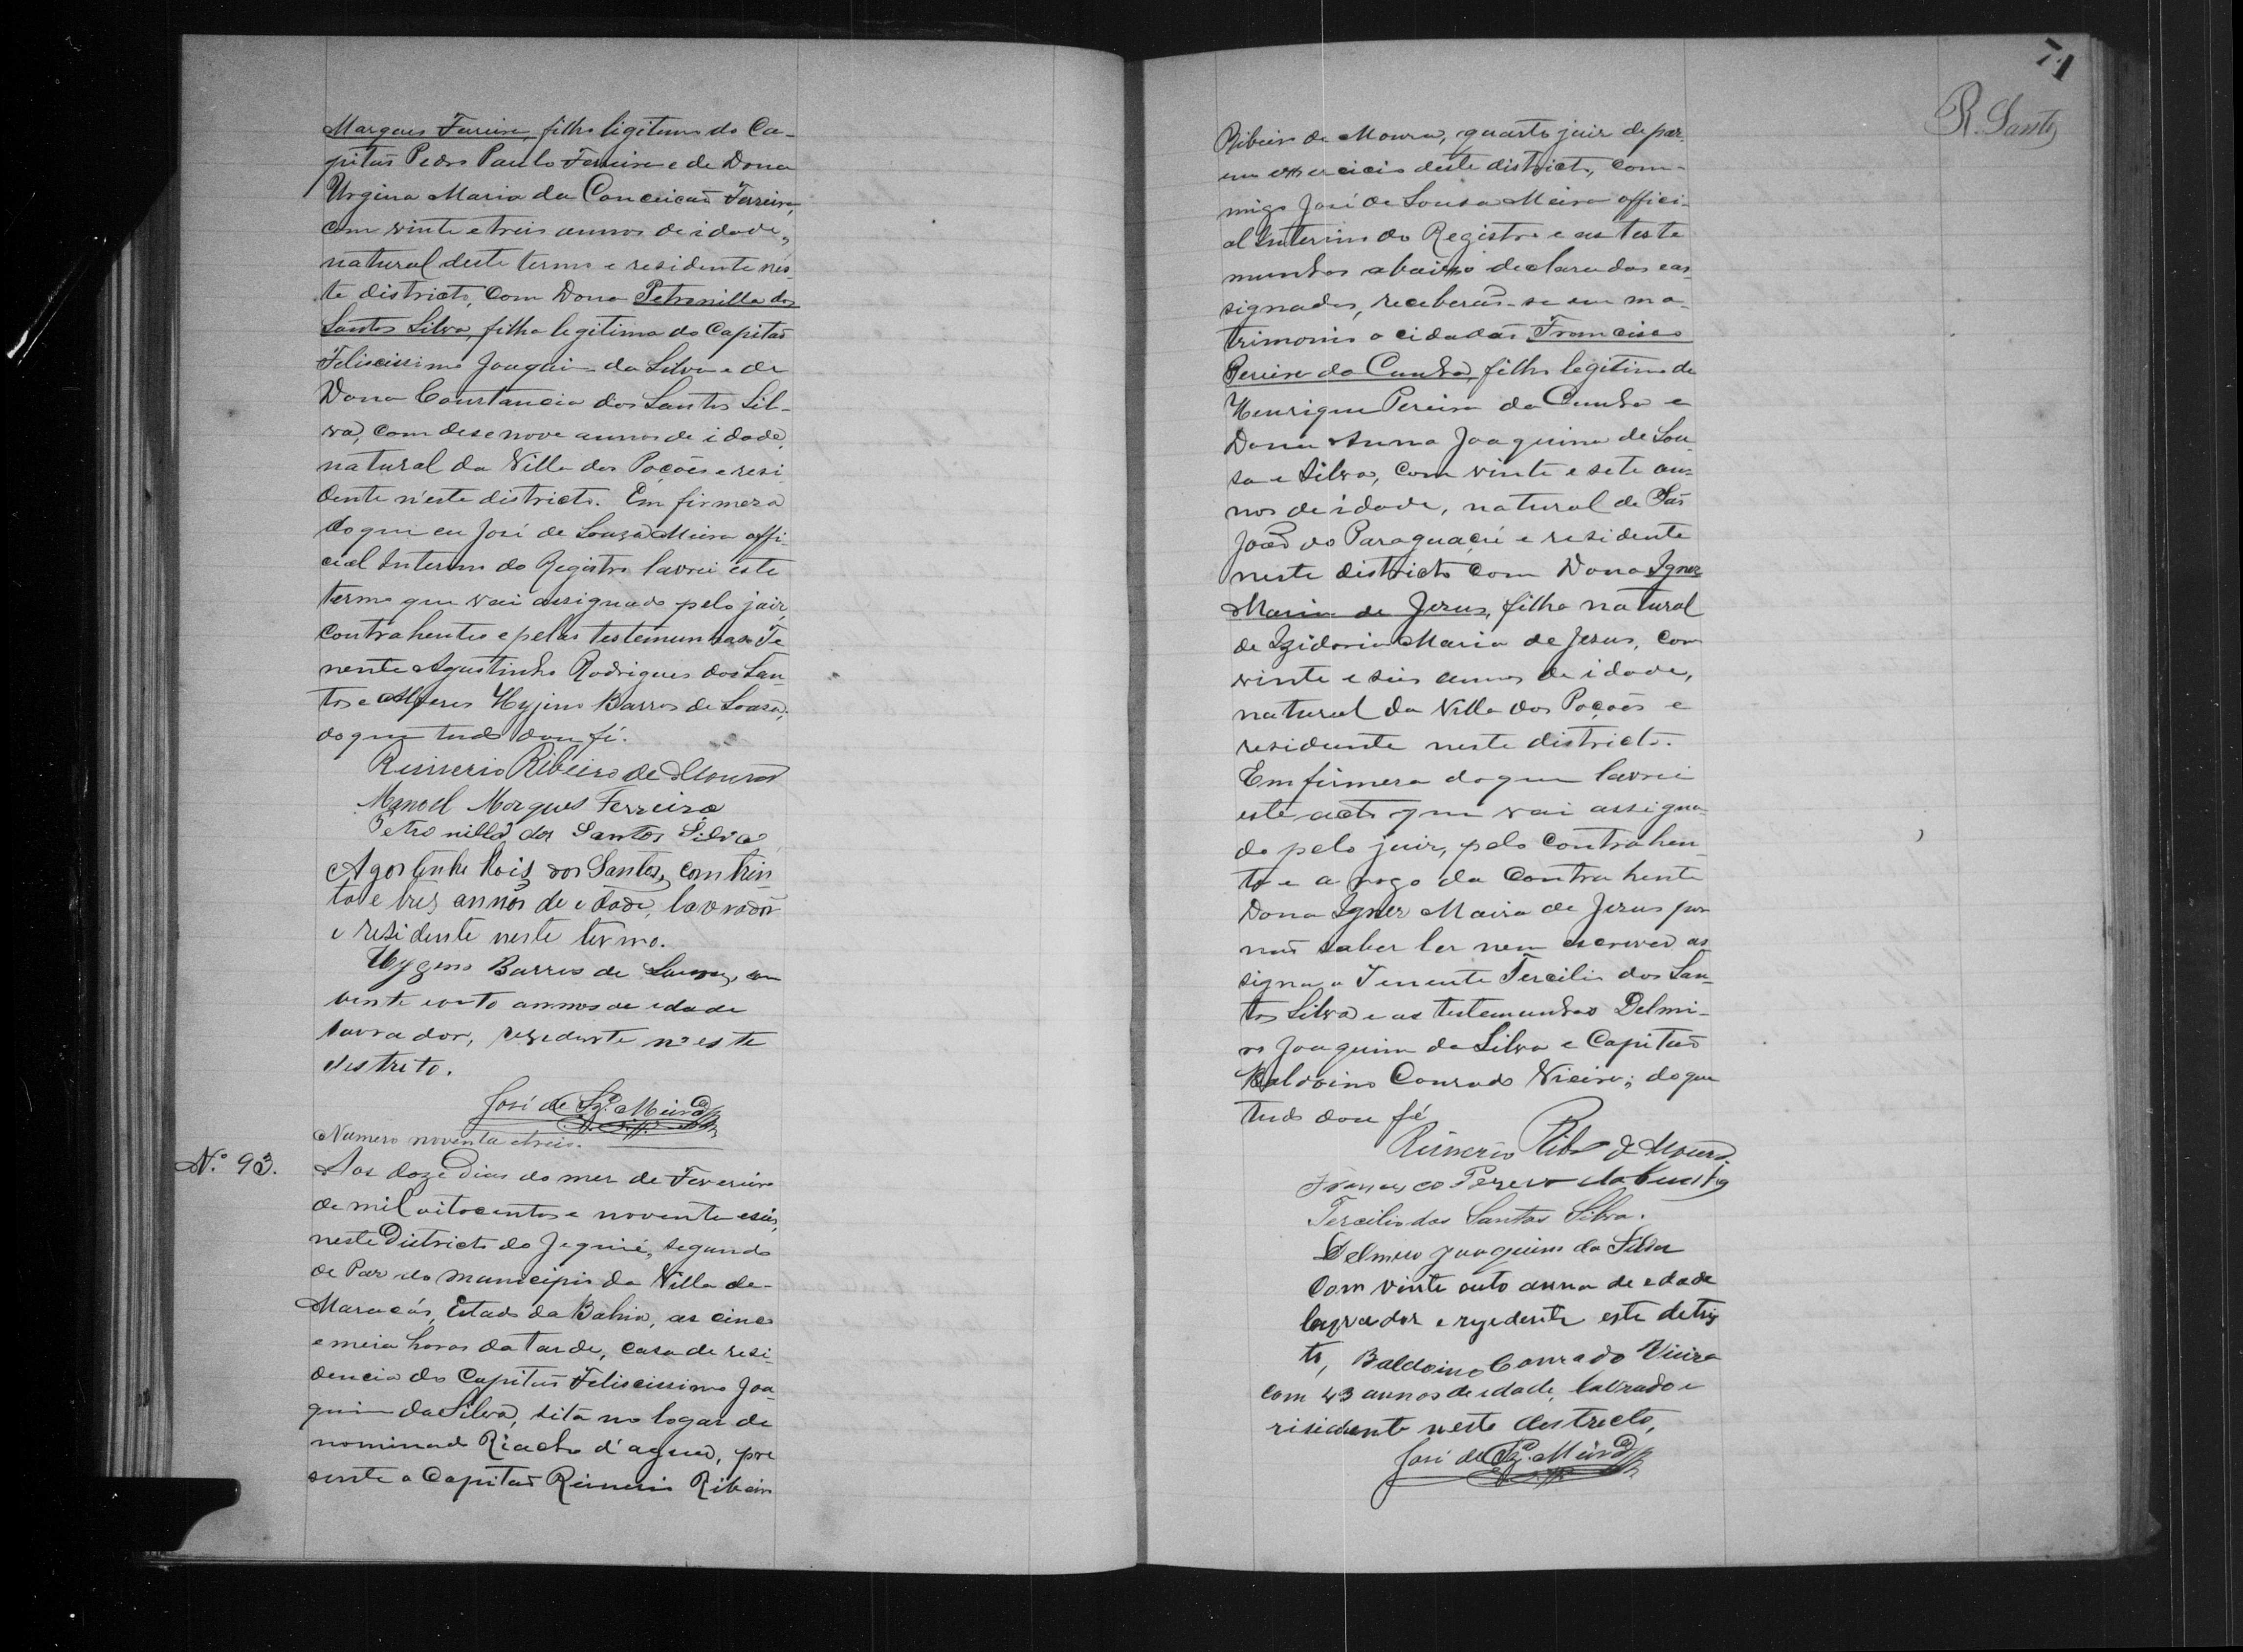 Marques Ferreira, filho ligitimo do Ca-
pitaõ Pedro Paulo Ferreira e de Dona
Urgina Maria da Conceicaõ Ferreira,
com vinte e treis annos de idade,
natural deste termo e residente nes-
te districto, com Dona Petronilla dos
Santos Silva, filha legitima do Capitaõ
Feliscissimo Joaquim da Silva e de
Dona Constancia dos Santos Sil-
va, com desenove annos de idade,
natural da Villa dos Poções e resi
dente n'este districto. Em firmeza
do que eu José de Souza Meira offi-
cial Interino do Registro lavrei este
termo que vai assignado pelo juiz,
contrahentes e pelas testemunhas Te
nente Agustinho Rodrigues dos San-
tos e Alferes Hyjino Barros de Sousa,
do que tudo dou fé.
Reinerio Ribeiro de Moura
Manoel Marques Ferreira
Petronilla dos Santos Silva
Agostinho Rois dos Santos, com trin-
ta e tres annos de edade, lavrador
e residente neste termo.
Hygino Barros de Souza, com
vinte e oito annos de edade
lavrador, rezidente n'este
destrito.
José de Sza. Meira
Numero noventa e treis.
N.º 93.
Aos doze dias do mez de Fevereiro
de mil oitocentos e noventa e seis,
neste Districto do Jequié, segundo
de Paz do municipio da Villa de
Maracás, Estado da Bahia, as cinco
e meia horas da tarde, casa de resi-
dencia do Capitaõ Feliscissimo Joa-
quim da Silva, sita no logar de
nominado Riacho d'agua, pre
sente o Capitaõ Reinerio Ribeiro
71
R. Santos
Ribeiro de Moura, quarto juiz de paz
em exercicio deste districto, com-
migo José de Sousa Meira offici-
al Interino do Registro e as teste
munhas abaixo declaradas e as-
signadas, receberaõ-se em ma-
trimonio o cidadaõ Francisco
Pereira da Cunha, filho legitimo de
Henrique Pereira da Cunha e
Dona Anna Joaquina de Sou-
sa e Silva, com vinte e sete an-
nos de idade, natural de Saõ
Joaõ do Paraguaçú e residente
neste districto com Dona Ignez
Maria de Jesus, filha natural
de Izidoria Maria de Jesus, com
vinte e seis annos de idade,
natural da Villa dos Poçoẽs e
residente neste districto.
Em firmeza do que lavrei
este acto que vai assigna-
do pelo juiz, pelo contrahen-
te e a rogo da contrahente
Dona Ignez Maria de Jesus por
naõ saber ler nem escrever as
signa o Tenente Tercilio dos San-
tos Silva e as testemunhas Delmi-
ro Joaquim da Silva e Capitaõ
Baldoino Conrado Vieira; do que
tudo dou fé
Reinerio Ribo de Moura
Francisco Pereira da Cunha
Tercilio dos Santos Silva.
Delmiro Joaquim da Silva
Com vinte outo anno de edade
lavrador e rezedente este detri
to, Baldoino Conrado Vieira
com 43 annos de edade, lavrado e
risidente neste destrecto,
José de Sza. Meira